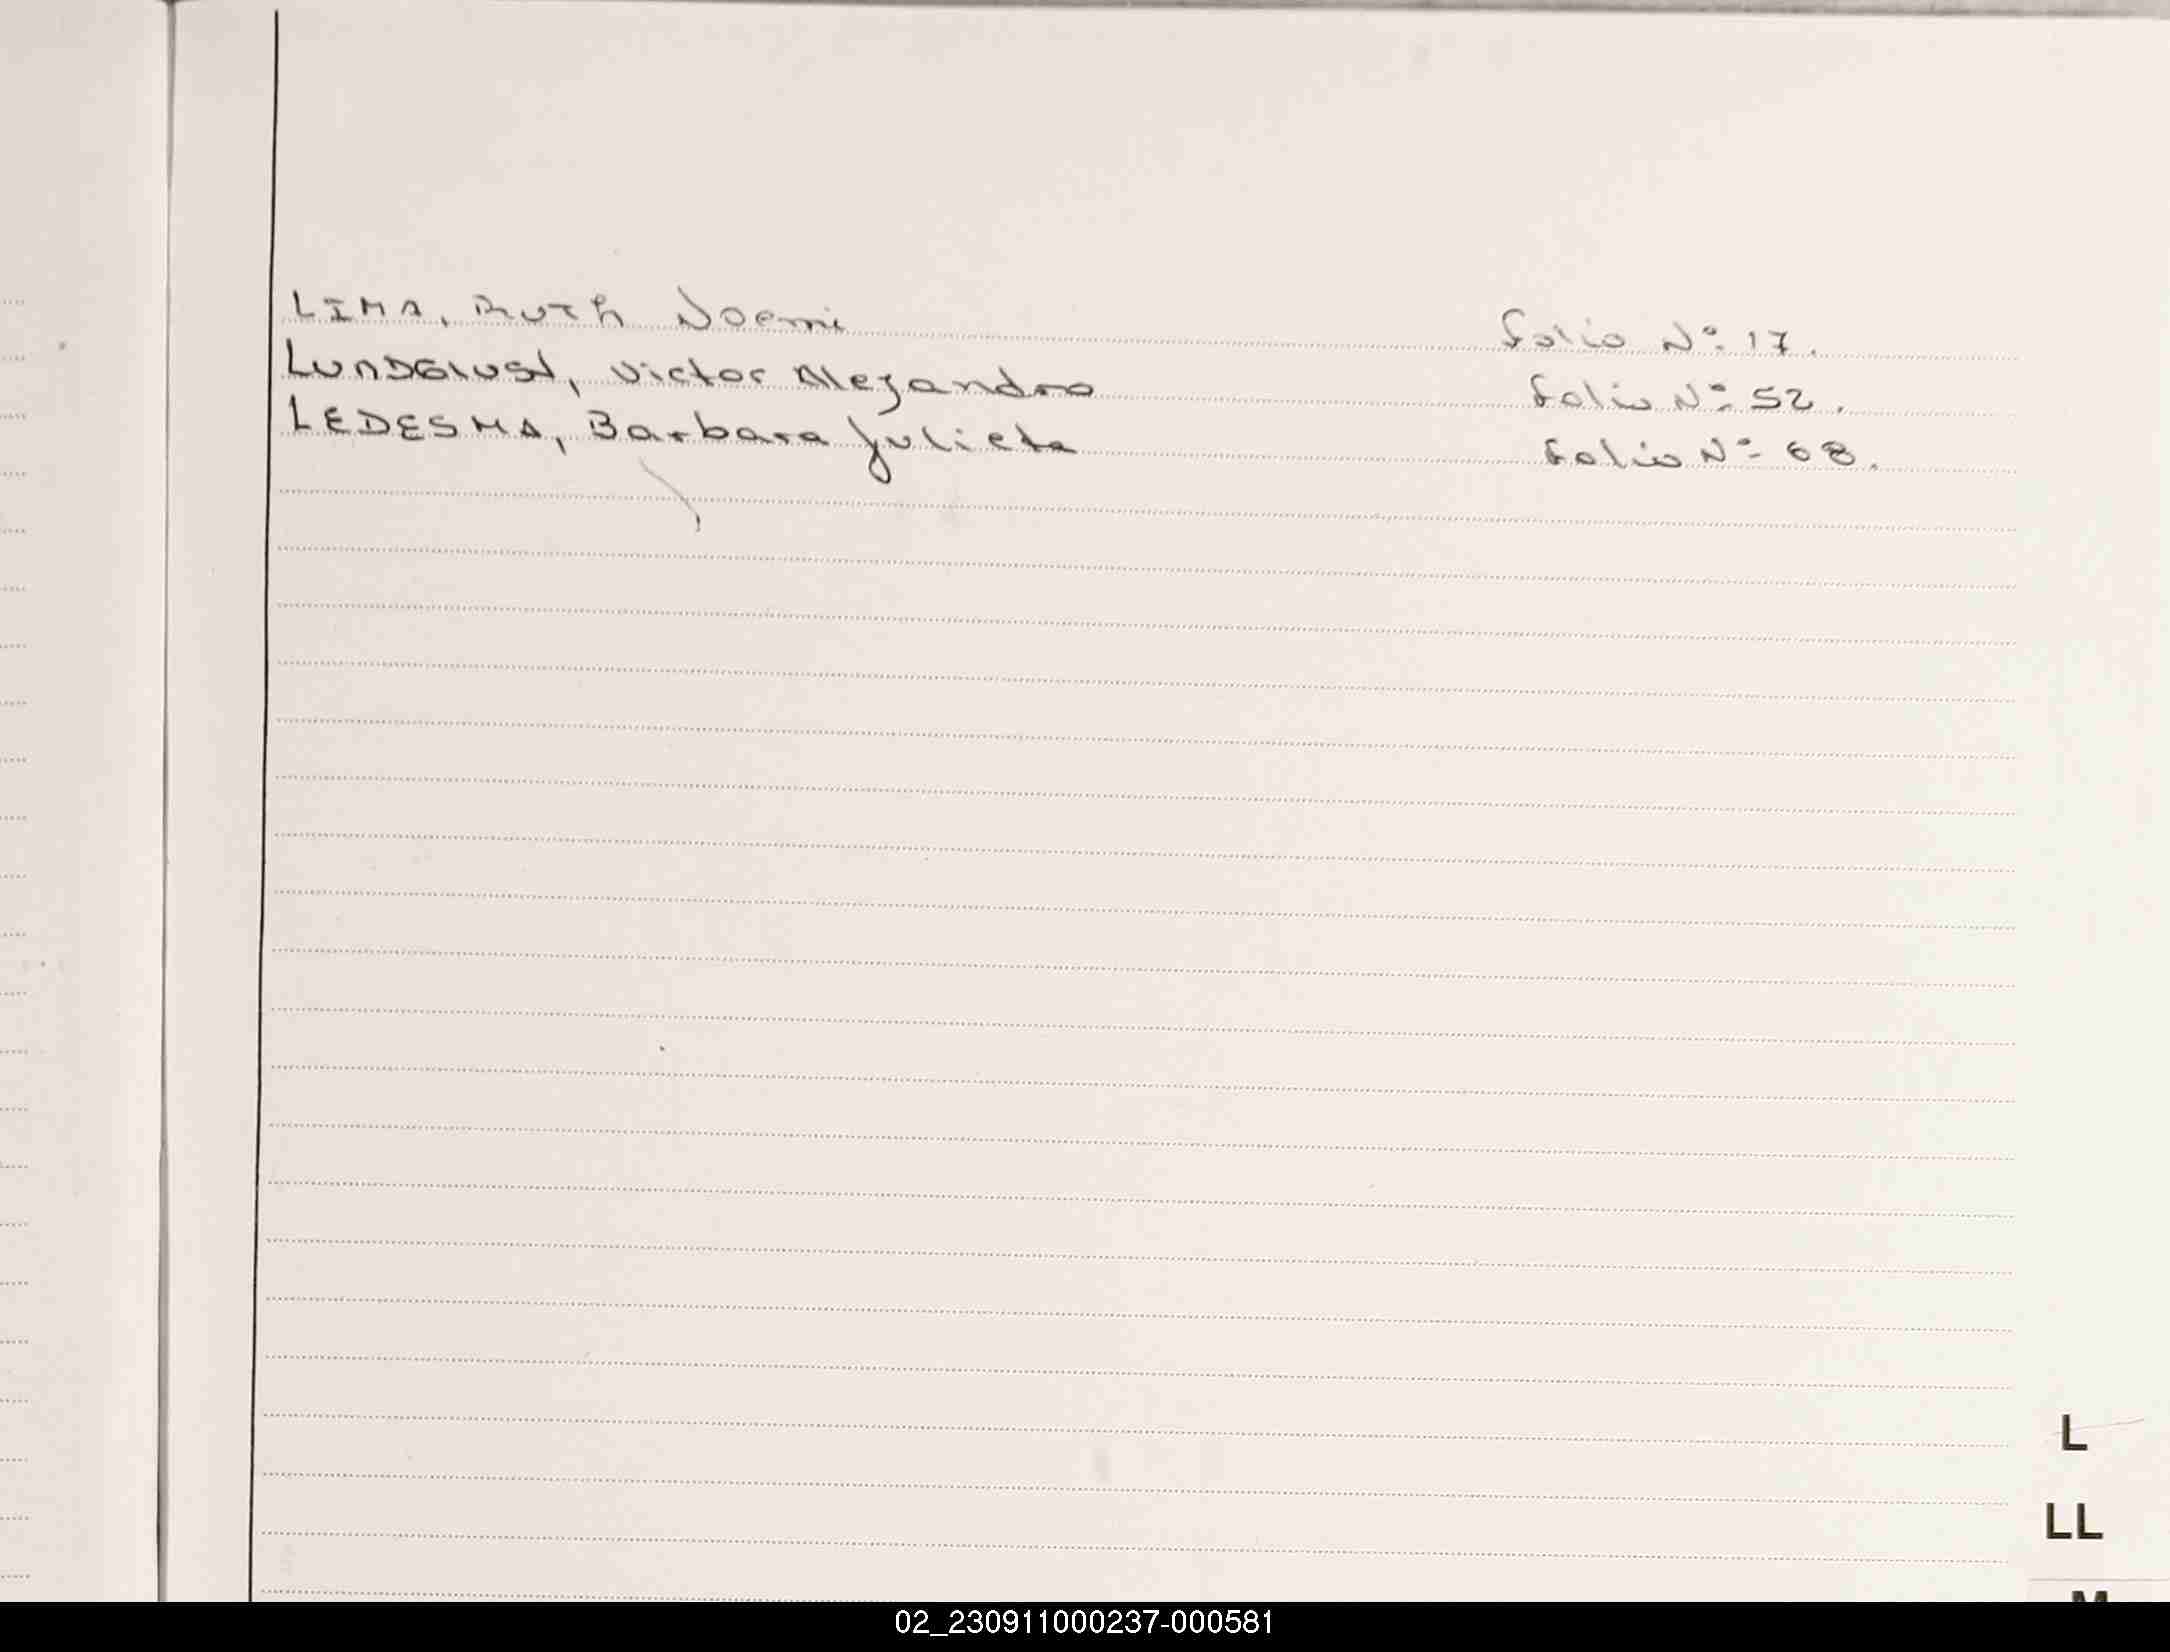 LIMA, Ruth Noemi folio Nº 17.
Victor Alejandro folio Nº 52.
LEDESMA, Barbara Julieta folio Nº 68.
L
LL
M
02_230911000237-000581